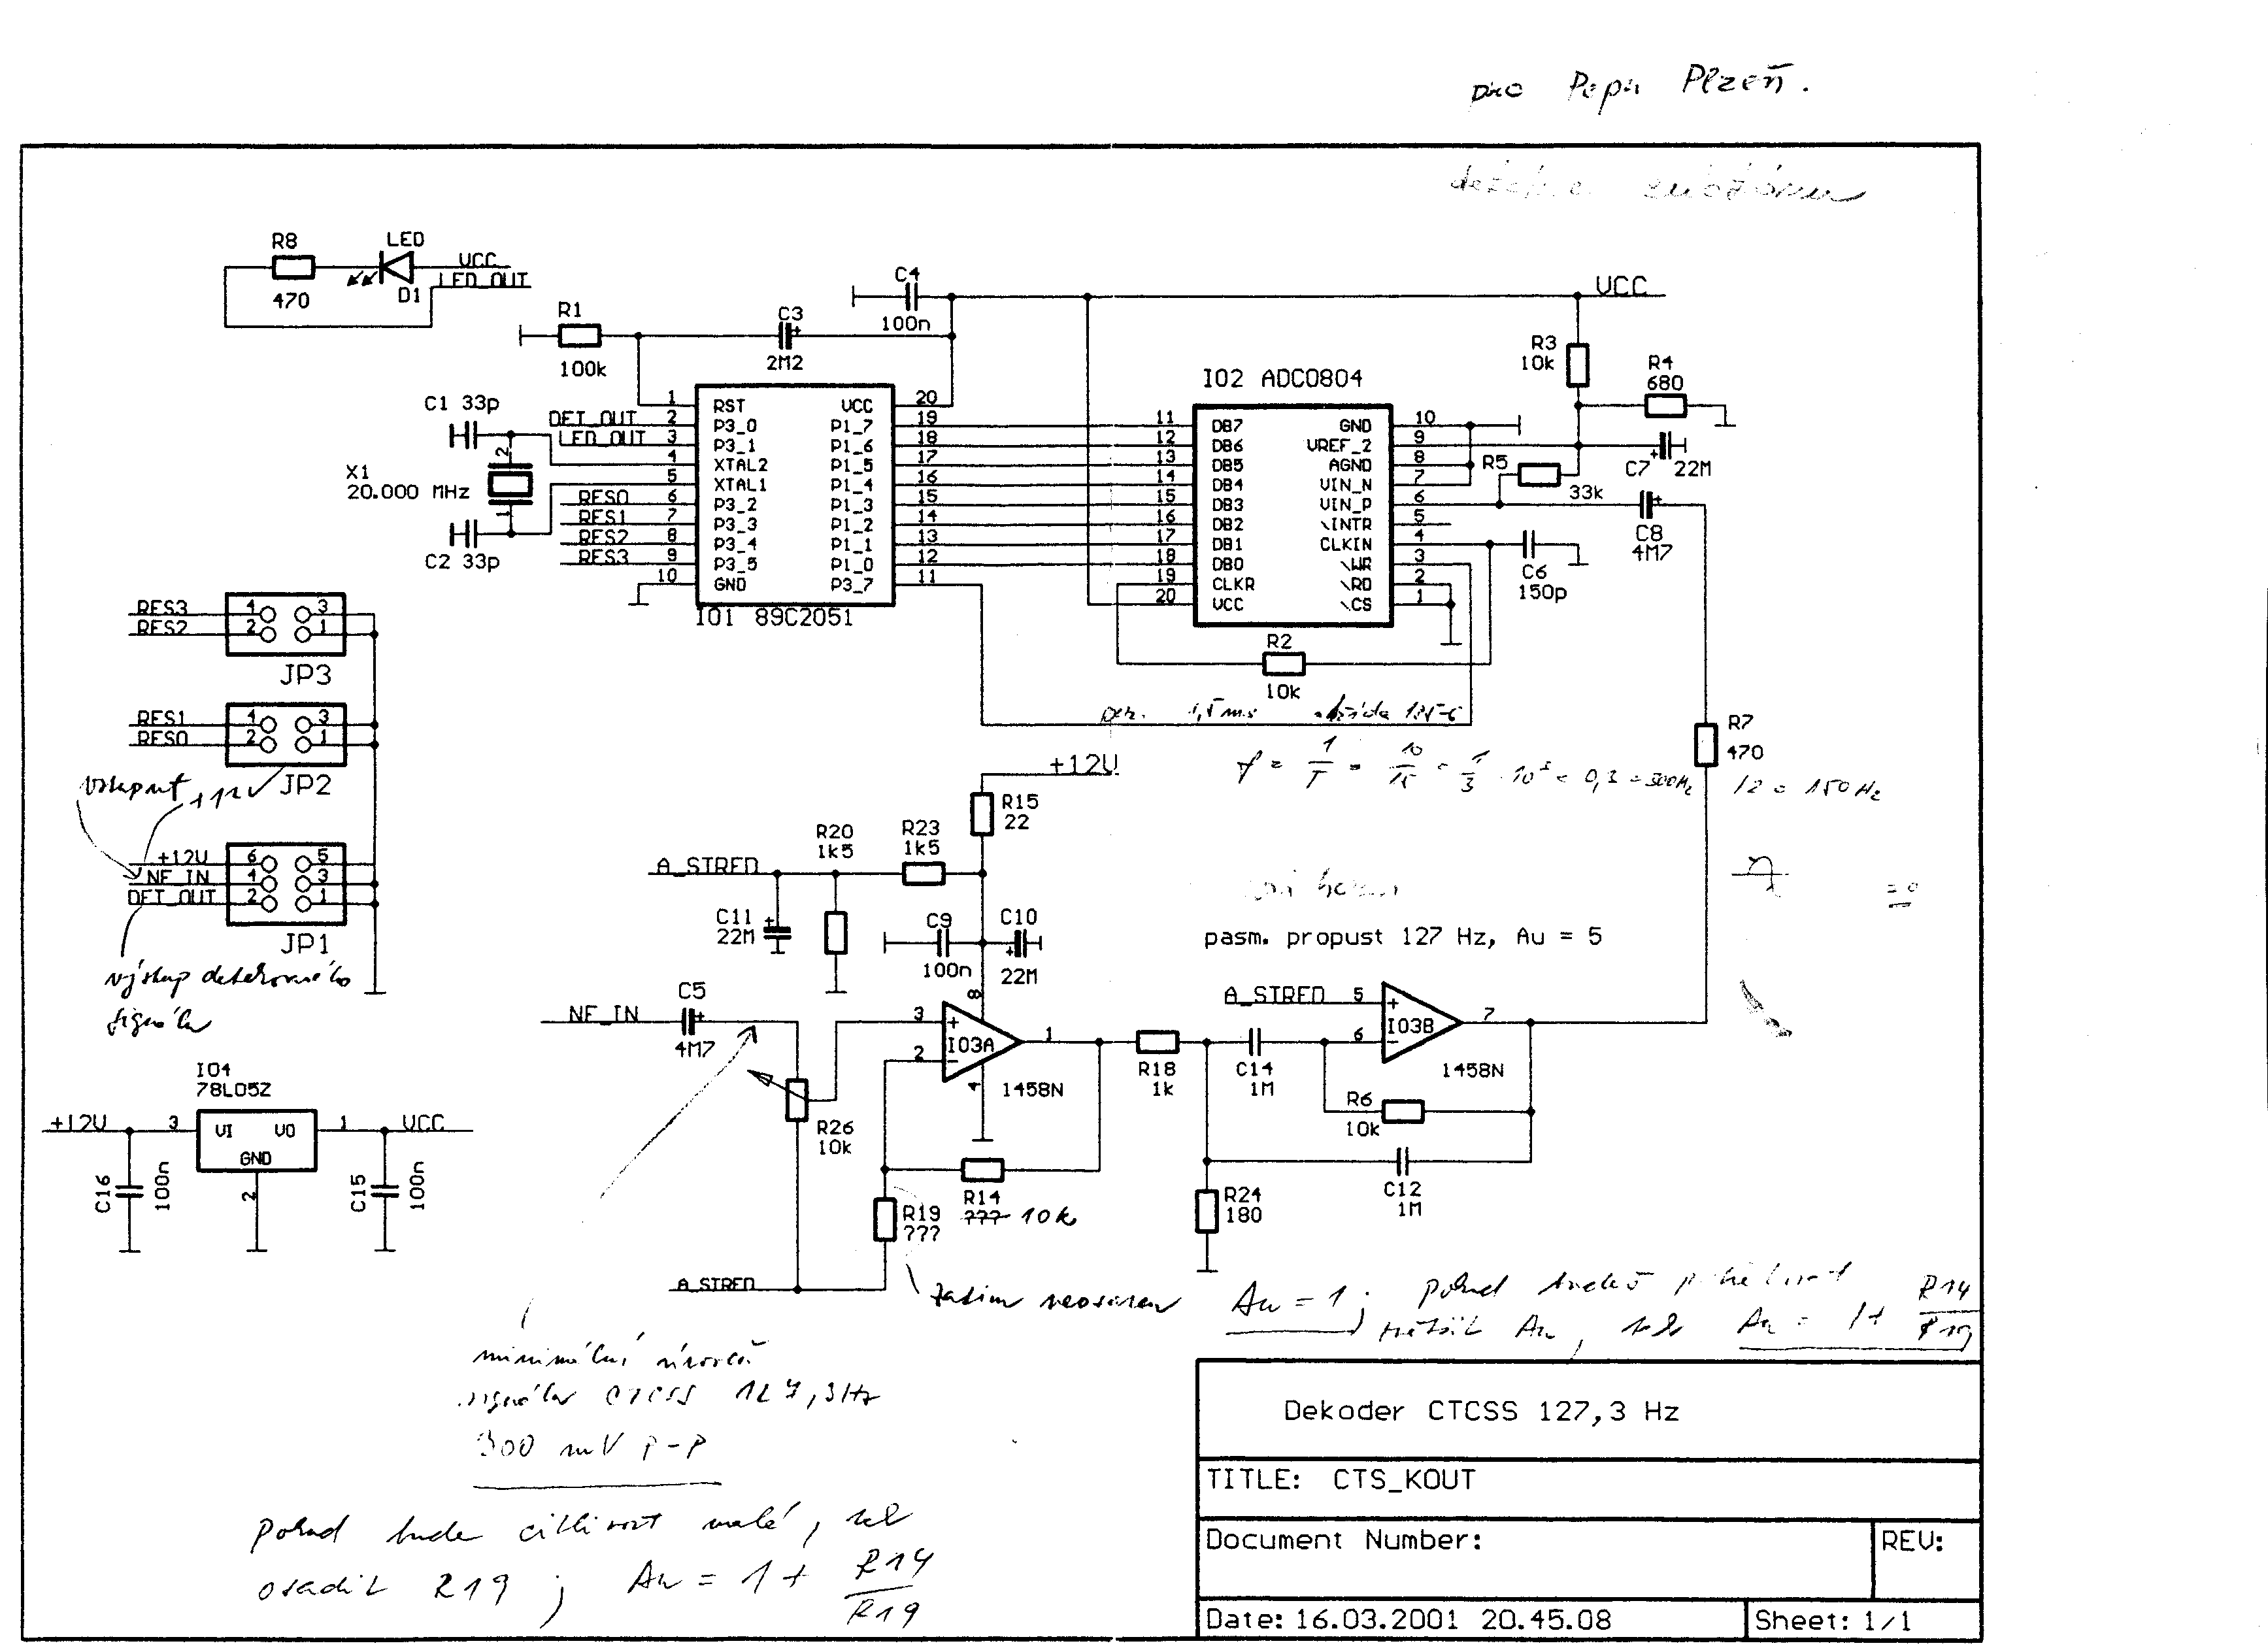 pro Pepu Plzeň.
R8
470
LED
VCC
LED_OUT
D1
R1
100k
C3
2M2
C4
100n
VCC
C1 33p
X1
20.000 MHz
C2 33p
2
1
DET_OUT
LED_OUT
RES0
RES1
RES2
RES3
1 RST VCC 20
2 P3_0 P1_7 19
3 P3_1 P1_6 18
4 XTAL2 P1_5 17
5 XTAL1 P1_4 16
6 P3_2 P1_3 15
7 P3_3 P1_2 14
8 P3_4 P1_1 13
9 P3_5 P1_0 12
10 GND P3_7 11
IO1 89C2051
IO2 ADC0804
11 DB7 GND 10
12 DB6 VREF_2 9
13 DB5 AGND 8
14 DB4 VIN_N 7
15 DB3 VIN_P 6
16 DB2 \INTR 5
17 DB1 CLKIN 4
18 DB0 \WR 3
19 CLKR \RD 2
20 VCC \CS 1
R3
10k
R4
680
R5
33k
C7 22M
C8
4M7
C6
150p
R2
10k
R7
470
RES3 4 3
RES2 2 1
JP3
RES1 4 3
RES0 2 1
JP2
vstupní +12V
+12V 6 5
NF_IN 4 3
DET_OUT 2 1
JP1
výstup detekovaného
signálu
1,5 ms
f = 1/T = 10/15 = 1/3 · 10³ = 0,3 = 300Hz /2 = 150 Hz
+12V
R15
22
R20
1k5
R23
1k5
A_STRED
C11
22M
C9
100n
C10
22M
pasm. propust 127 Hz, Au = 5
NF_IN
C5
4M7
R26
10k
3
2
8
4
1
IO3A
1458N
R14
??? 10k
R19
???
A_STRED
R18
1k
C14
1M
A_STRED
5
6
7
IO3B
1458N
R6
10k
C12
1M
R24
180
IO4
78L05Z
+12V 3 VI VO 1 VCC
GND
2
C16
100n
C15
100n
zatím neosazen
Au = 1; pokud budeš potřebovat
zvětšit Au, tak Au = 1+ R14/R19
minimální úroveň
signálu CTCSS 127,3Hz
300 mV P-P
Pokud bude citlivost malá, tak
osadit R19; Au = 1 + R14/R19
Dekoder CTCSS 127,3 Hz
TITLE: CTS_KOUT
Document Number:
REV:
Date: 16.03.2001 20.45.08
Sheet: 1/1